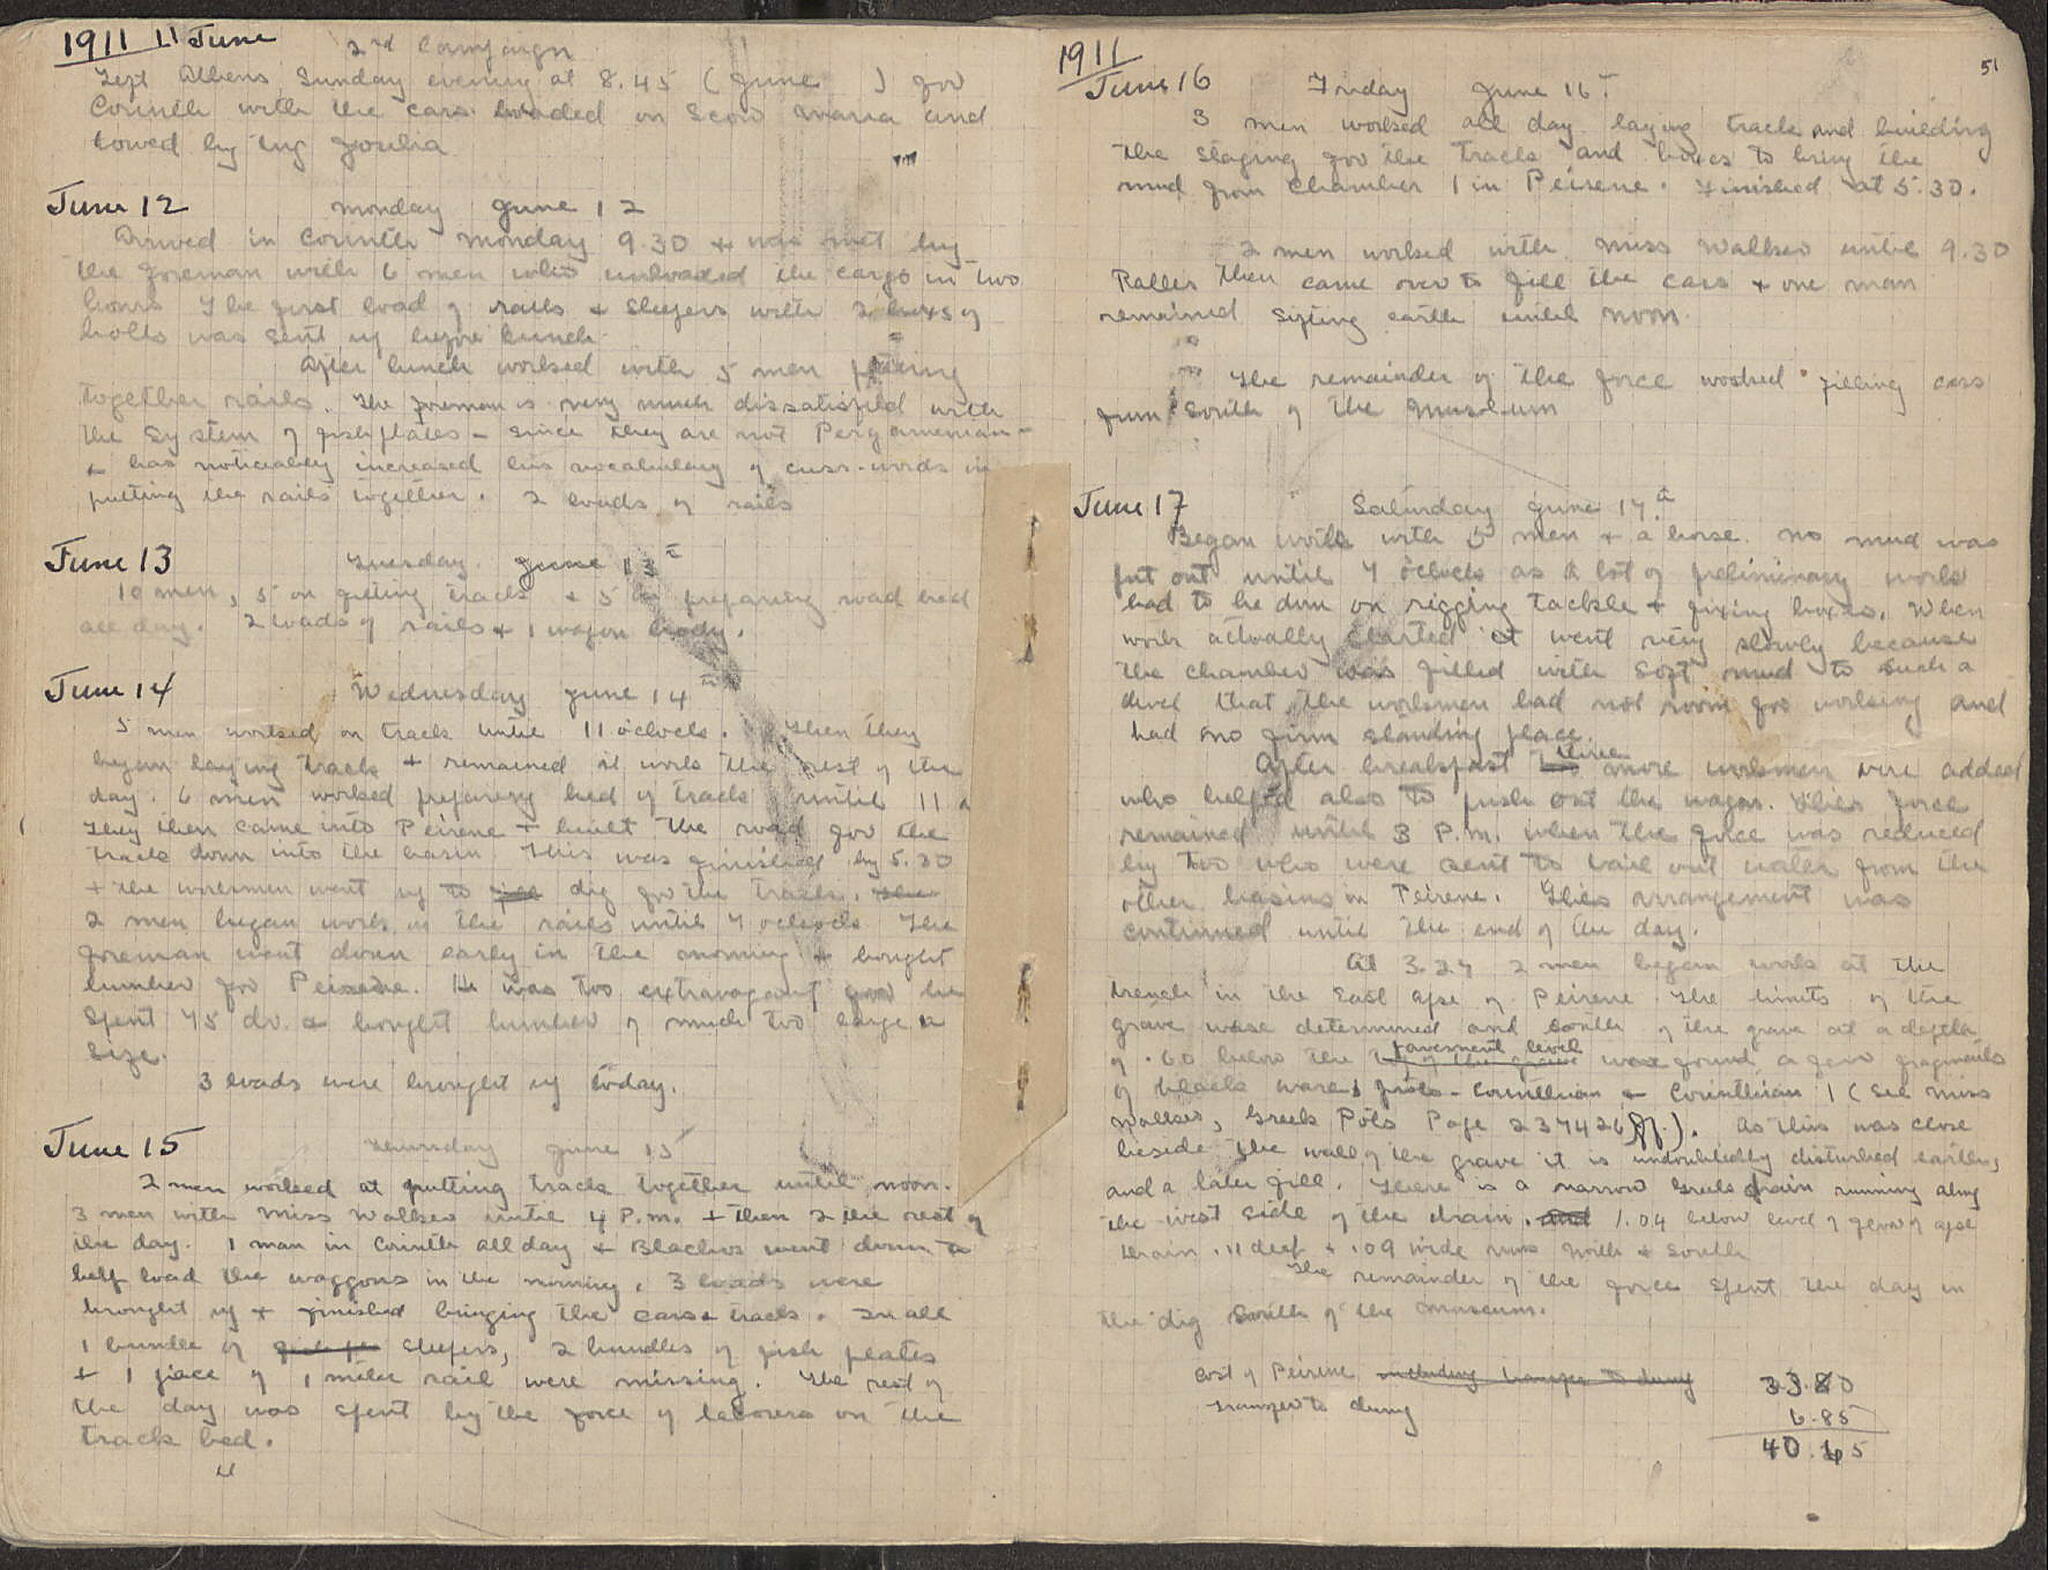 1911 11 June
2nd Campaign
Left Athens Sunday evening at 8.45 (June ) for
Corinth with the cars loaded on Scow Maria and
towed by tug
June 12 Monday June 12
Arrived in Corinth Monday 9.30 + was met by
the foreman with 6 men who unloaded the cargo in two
hours The first load of rails + sleepers with 2 boxes of
bolts was sent up before lunch
After lunch worked with 5 men putting
together rails. The foreman is very much dissatisfied with
the system of fishplates - since they are not Pergamenian -
+ has noticeably increased his vocabulary of cuss-words in
putting the rails together. 2 loads of rails
June 13 Tuesday. June 13th
10 men, 5 on fitting track + 5 on preparing road bed
all day. 2 loads of rails + 1 wagon body.
June 14 Wednesday June 14th
5 men worked on track until 11 o'clock. Then they
began laying track + remained at work the rest of the
day. 6 men worked preparing bed of track until 11
They then came into Peirene + built the road for the
track down into the basin. This was finished by 5.30
+ the workmen went up to dig for the track.
2 men began work on the rails until 7 o'clock The
foreman went down early in the morning + bought
lumber for Peirene. He was too extravagant for he
spent 75 dr. + bought lumber of much too large a
size.
3 loads were brought up today.
June 15 Thursday June 15
2 men worked at putting track together until noon.
3 men with Miss Walker until 4 P.M. + then 2 the rest of
the day. 1 man in Corinth all day + Blachos went down to
help load the waggons in the morning. 3 loads were
brought up + finished bringing the cars + track. In all
1 bundle of sleepers, 2 bundles of fish plates
+ 1 piece of 1 meter rail were missing. The rest of
the day was spent by the force of laborers on the
track bed.
1911 51
June 16 Friday June 16th
3 men worked all day laying track and building
the staging for the track and boxes to bring the
mud from chamber 1 in Peirene. Finished at 5.30.
2 men worked with Miss Walker until 9.30
Rather then came over to fill the cars + one man
remained sifting earth until noon.
The remainder of the force worked filling cars
from South of the Museum
June 17 Saturday June 17th
Began work with 5 men + a horse. No mud was
put out until 7 o'clock as a lot of preliminary work
had to be done on rigging tackle + fixing boxes. When
work actually started it went very slowly because
the chamber was filled with soft mud to such a
level that the workmen had not room for working and
had no firm standing place.
After breakfast three more workmen were added
who helped also to push out the wagon. This force
remained until 3 P.M. when the force was reduced
by two who were sent to bail out water from the
other basins in Peirene. This arrangement was
continued until the end of the day.
At 3.27 2 men began work at the
trench in the East apse of Peirene. The limits of the
grave were determined and south of the grave at a depth
of .60 below the top of the grave pavement level was found a few fragments
of black ware, proto-Corinthian + Corinthian (See Miss
Walker, Greek Pots Page 237426ff.). As this was close
beside the wall of the grave it is undoubtedly disturbed earth,
and a later fill. There is a narrow Greek drain running along
the west side of the drain, and 1.04 below level of floor of apse
Drain .11 deep + .09 wide runs North + South
The remainder of the force spent the day in
the dig South of the Museum.
Cost of Peirene including transfer to dump 33.80
Transfer to dump 6.85
40.65